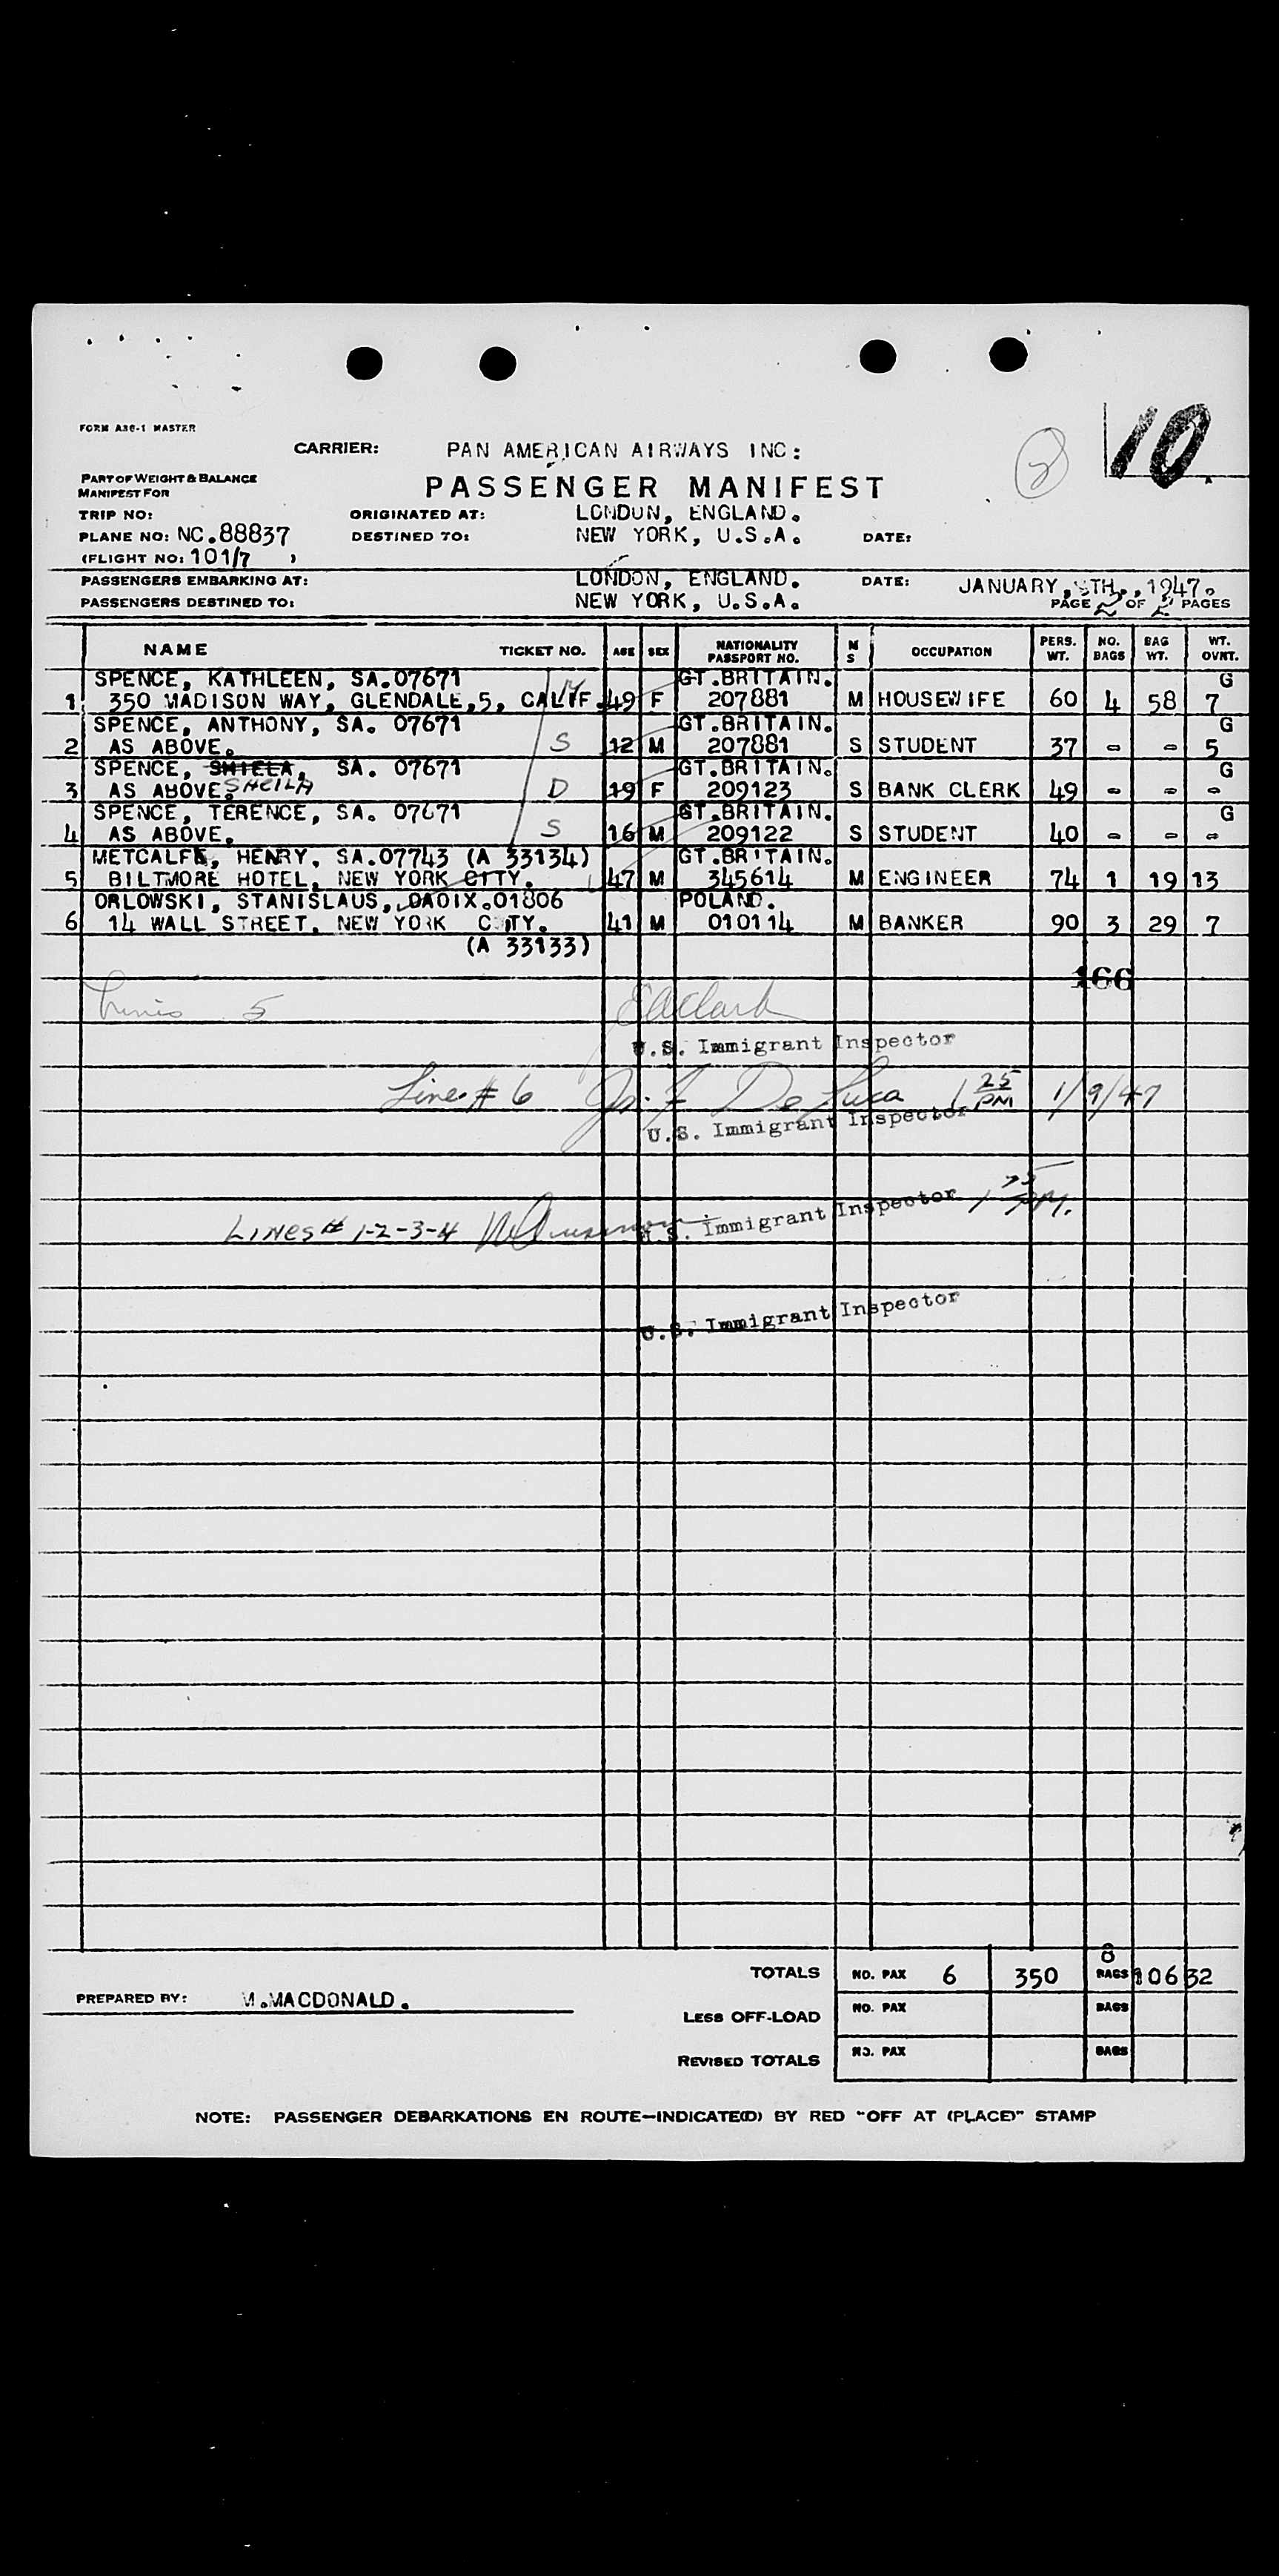 10
2
FORM A30-1 MASTER
CARRIER: PAN AMERICAN AIRWAYS INC:
PART OF WEIGHT & BALANCE
MANIFEST FOR
PASSENGER MANIFEST
TRIP NO: ORIGINATED AT: LONDON, ENGLAND.
PLANE NO: NC.88837 DESTINED TO: NEW YORK, U.S.A. DATE:
(FLIGHT NO: 101/7 )
PASSENGERS EMBARKING AT: LONDON, ENGLAND. DATE: JANUARY, 8TH., 1947.
PASSENGERS DESTINED TO: NEW YORK, U.S.A. PAGE 2 OF 2 PAGES
NAME TICKET NO. AGE SEX NATIONALITY PASSPORT NO. M S OCCUPATION PERS. WT. NO. BAGS BAG WT. WT. OVNT.
SPENCE, KATHLEEN, SA.07671 GT.BRITAIN. G
1 350 MADISON WAY, GLENDALE,5, CALIF. 49 F 207881 M HOUSEWIFE 60 4 58 7
SPENCE, ANTHONY, SA. 07671 GT.BRITAIN. G
2 AS ABOVE. S 12 M 207881 S STUDENT 37 - - 5
SPENCE, SHIELA, SA. 07671 GT.BRITAIN. G
3 AS ABOVE. SHEILA D 19 F 209123 S BANK CLERK 49 - - -
SPENCE, TERENCE, SA. 07671 GT.BRITAIN. G
4 AS ABOVE. S 16 M 209122 S STUDENT 40 - - -
METCALFE, HENRY, SA.07743 (A 33134) GT.BRITAIN.
5 BILTMORE HOTEL, NEW YORK CITY. 47 M 345614 M ENGINEER 74 1 19 13
ORLOWSKI, STANISLAUS, OAOIX.01806 POLAND.
6 14 WALL STREET, NEW YORK CITY. 41 M 010114 M BANKER 90 3 29 7
(A 33133)
166
Lines 5 E A Clark
U.S. Immigrant Inspector
Line # 6 Jos. F De Luca 1 25 PM 1/9/47
U.S. Immigrant Inspector
LINES # 1-2-3-4 U.S. Immigrant Inspector 1 25 PM.
U.S. Immigrant Inspector
8
TOTALS NO. PAX 6 350 BAGS 106 32
PREPARED BY: M.MACDONALD.
LESS OFF-LOAD NO. PAX BAGS
REVISED TOTALS NO. PAX BAGS
NOTE: PASSENGER DEBARKATIONS EN ROUTE—INDICATE(D) BY RED "OFF AT (PLACE)" STAMP